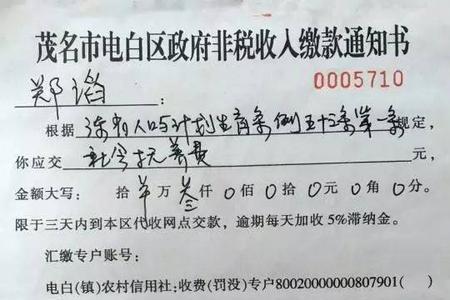 茂名市电白区政府非税收入缴款通知书
0005710
郑滔:
根据 涉省人口与计划生育条例五十三条第一条 规定,
你应交 社会抚养费 元,
金额大写: 拾 羊 万 叁 仟 0 佰 0 拾 0 元 0 角 0 分。
限于三天内到本区代收网点交款,逾期每天加收5%滞纳金。
汇缴专户账号:
电白(镇)农村信用社:收费(罚没)专户80020000000807901( )